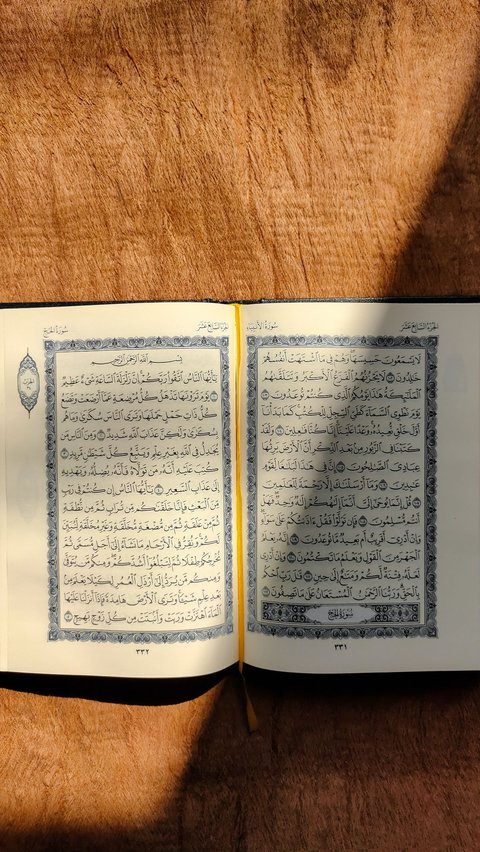 الجزء السابع عشر
سورة الأنبياء
لَا يَسْمَعُونَ حَسِيسَهَا ۖ وَهُمْ فِي مَا ٱشْتَهَتْ أَنفُسُهُمْ
خَٰلِدُونَ ١٠٢ لَا يَحْزُنُهُمُ ٱلْفَزَعُ ٱلْأَكْبَرُ وَتَتَلَقَّىٰهُمُ
ٱلْمَلَٰٓئِكَةُ هَٰذَا يَوْمُكُمُ ٱلَّذِي كُنتُمْ تُوعَدُونَ ١٠٣
يَوْمَ نَطْوِي ٱلسَّمَآءَ كَطَيِّ ٱلسِّجِلِّ لِلْكُتُبِ ۚ كَمَا بَدَأْنَآ
أَوَّلَ خَلْقٍ نُّعِيدُهُۥ ۚ وَعْدًا عَلَيْنَآ ۚ إِنَّا كُنَّا فَٰعِلِينَ ١٠٤ وَلَقَدْ
كَتَبْنَا فِي ٱلزَّبُورِ مِنۢ بَعْدِ ٱلذِّكْرِ أَنَّ ٱلْأَرْضَ يَرِثُهَا
عِبَادِيَ ٱلصَّٰلِحُونَ ١٠٥ إِنَّ فِي هَٰذَا لَبَلَٰغًا لِّقَوْمٍ
عَٰبِدِينَ ١٠٦ وَمَآ أَرْسَلْنَٰكَ إِلَّا رَحْمَةً لِّلْعَٰلَمِينَ ١٠٧
قُلْ إِنَّمَا يُوحَىٰٓ إِلَيَّ أَنَّمَآ إِلَٰهُكُمْ إِلَٰهٌ وَٰحِدٌ ۖ فَهَلْ
أَنتُم مُّسْلِمُونَ ١٠٨ فَإِن تَوَلَّوْا۟ فَقُلْ ءَاذَنتُكُمْ عَلَىٰ سَوَآءٍ ۖ
وَإِنْ أَدْرِيٓ أَقَرِيبٌ أَم بَعِيدٌ مَّا تُوعَدُونَ ١٠٩ إِنَّهُۥ يَعْلَمُ
ٱلْجَهْرَ مِنَ ٱلْقَوْلِ وَيَعْلَمُ مَا تَكْتُمُونَ ١١٠ وَإِنْ أَدْرِي
لَعَلَّهُۥ فِتْنَةٌ لَّكُمْ وَمَتَٰعٌ إِلَىٰ حِينٍ ١١١ قَٰلَ رَبِّ ٱحْكُم
بِٱلْحَقِّ ۗ وَرَبُّنَا ٱلرَّحْمَٰنُ ٱلْمُسْتَعَانُ عَلَىٰ مَا تَصِفُونَ ١١٢
سُورَةُ الحَجِّ
٣٣١
الجزء السابع عشر
سورة الحج
بِسْمِ ٱللَّهِ ٱلرَّحْمَٰنِ ٱلرَّحِيمِ
يَٰٓأَيُّهَا ٱلنَّاسُ ٱتَّقُوا۟ رَبَّكُمْ ۚ إِنَّ زَلْزَلَةَ ٱلسَّاعَةِ شَيْءٌ عَظِيمٌ
١ يَوْمَ تَرَوْنَهَا تَذْهَلُ كُلُّ مُرْضِعَةٍ عَمَّآ أَرْضَعَتْ وَتَضَعُ
كُلُّ ذَاتِ حَمْلٍ حَمْلَهَا وَتَرَى ٱلنَّاسَ سُكَٰرَىٰ وَمَا هُم
بِسُكَٰرَىٰ وَلَٰكِنَّ عَذَابَ ٱللَّهِ شَدِيدٌ ٢ وَمِنَ ٱلنَّاسِ مَن
يُجَٰدِلُ فِي ٱللَّهِ بِغَيْرِ عِلْمٍ وَيَتَّبِعُ كُلَّ شَيْطَٰنٍ مَّرِيدٍ ٣
كُتِبَ عَلَيْهِ أَنَّهُۥ مَن تَوَلَّاهُ فَأَنَّهُۥ يُضِلُّهُۥ وَيَهْدِيهِ
إِلَىٰ عَذَابِ ٱلسَّعِيرِ ٤ يَٰٓأَيُّهَا ٱلنَّاسُ إِن كُنتُمْ فِي رَيْبٍ
مِّنَ ٱلْبَعْثِ فَإِنَّا خَلَقْنَٰكُم مِّن تُرَابٍ ثُمَّ مِن نُّطْفَةٍ
ثُمَّ مِنْ عَلَقَةٍ ثُمَّ مِن مُّضْغَةٍ مُّخَلَّقَةٍ وَغَيْرِ مُخَلَّقَةٍ لِّنُبَيِّنَ
لَكُمْ ۚ وَنُقِرُّ فِي ٱلْأَرْحَامِ مَا نَشَآءُ إِلَىٰٓ أَجَلٍ مُّسَمًّى ثُمَّ
نُخْرِجُكُمْ طِفْلًا ثُمَّ لِتَبْلُغُوٓا۟ أَشُدَّكُمْ ۖ وَمِنكُم مَّن يُتَوَفَّىٰ
وَمِنكُم مَّن يُرَدُّ إِلَىٰٓ أَرْذَلِ ٱلْعُمُرِ لِكَيْلَا يَعْلَمَ مِنۢ
بَعْدِ عِلْمٍ شَيْـًٔا ۚ وَتَرَى ٱلْأَرْضَ هَامِدَةً فَإِذَآ أَنزَلْنَا عَلَيْهَا
ٱلْمَآءَ ٱهْتَزَّتْ وَرَبَتْ وَأَنۢبَتَتْ مِن كُلِّ زَوْجٍۭ بَهِيجٍ ٥
٣٣٢
الحزب